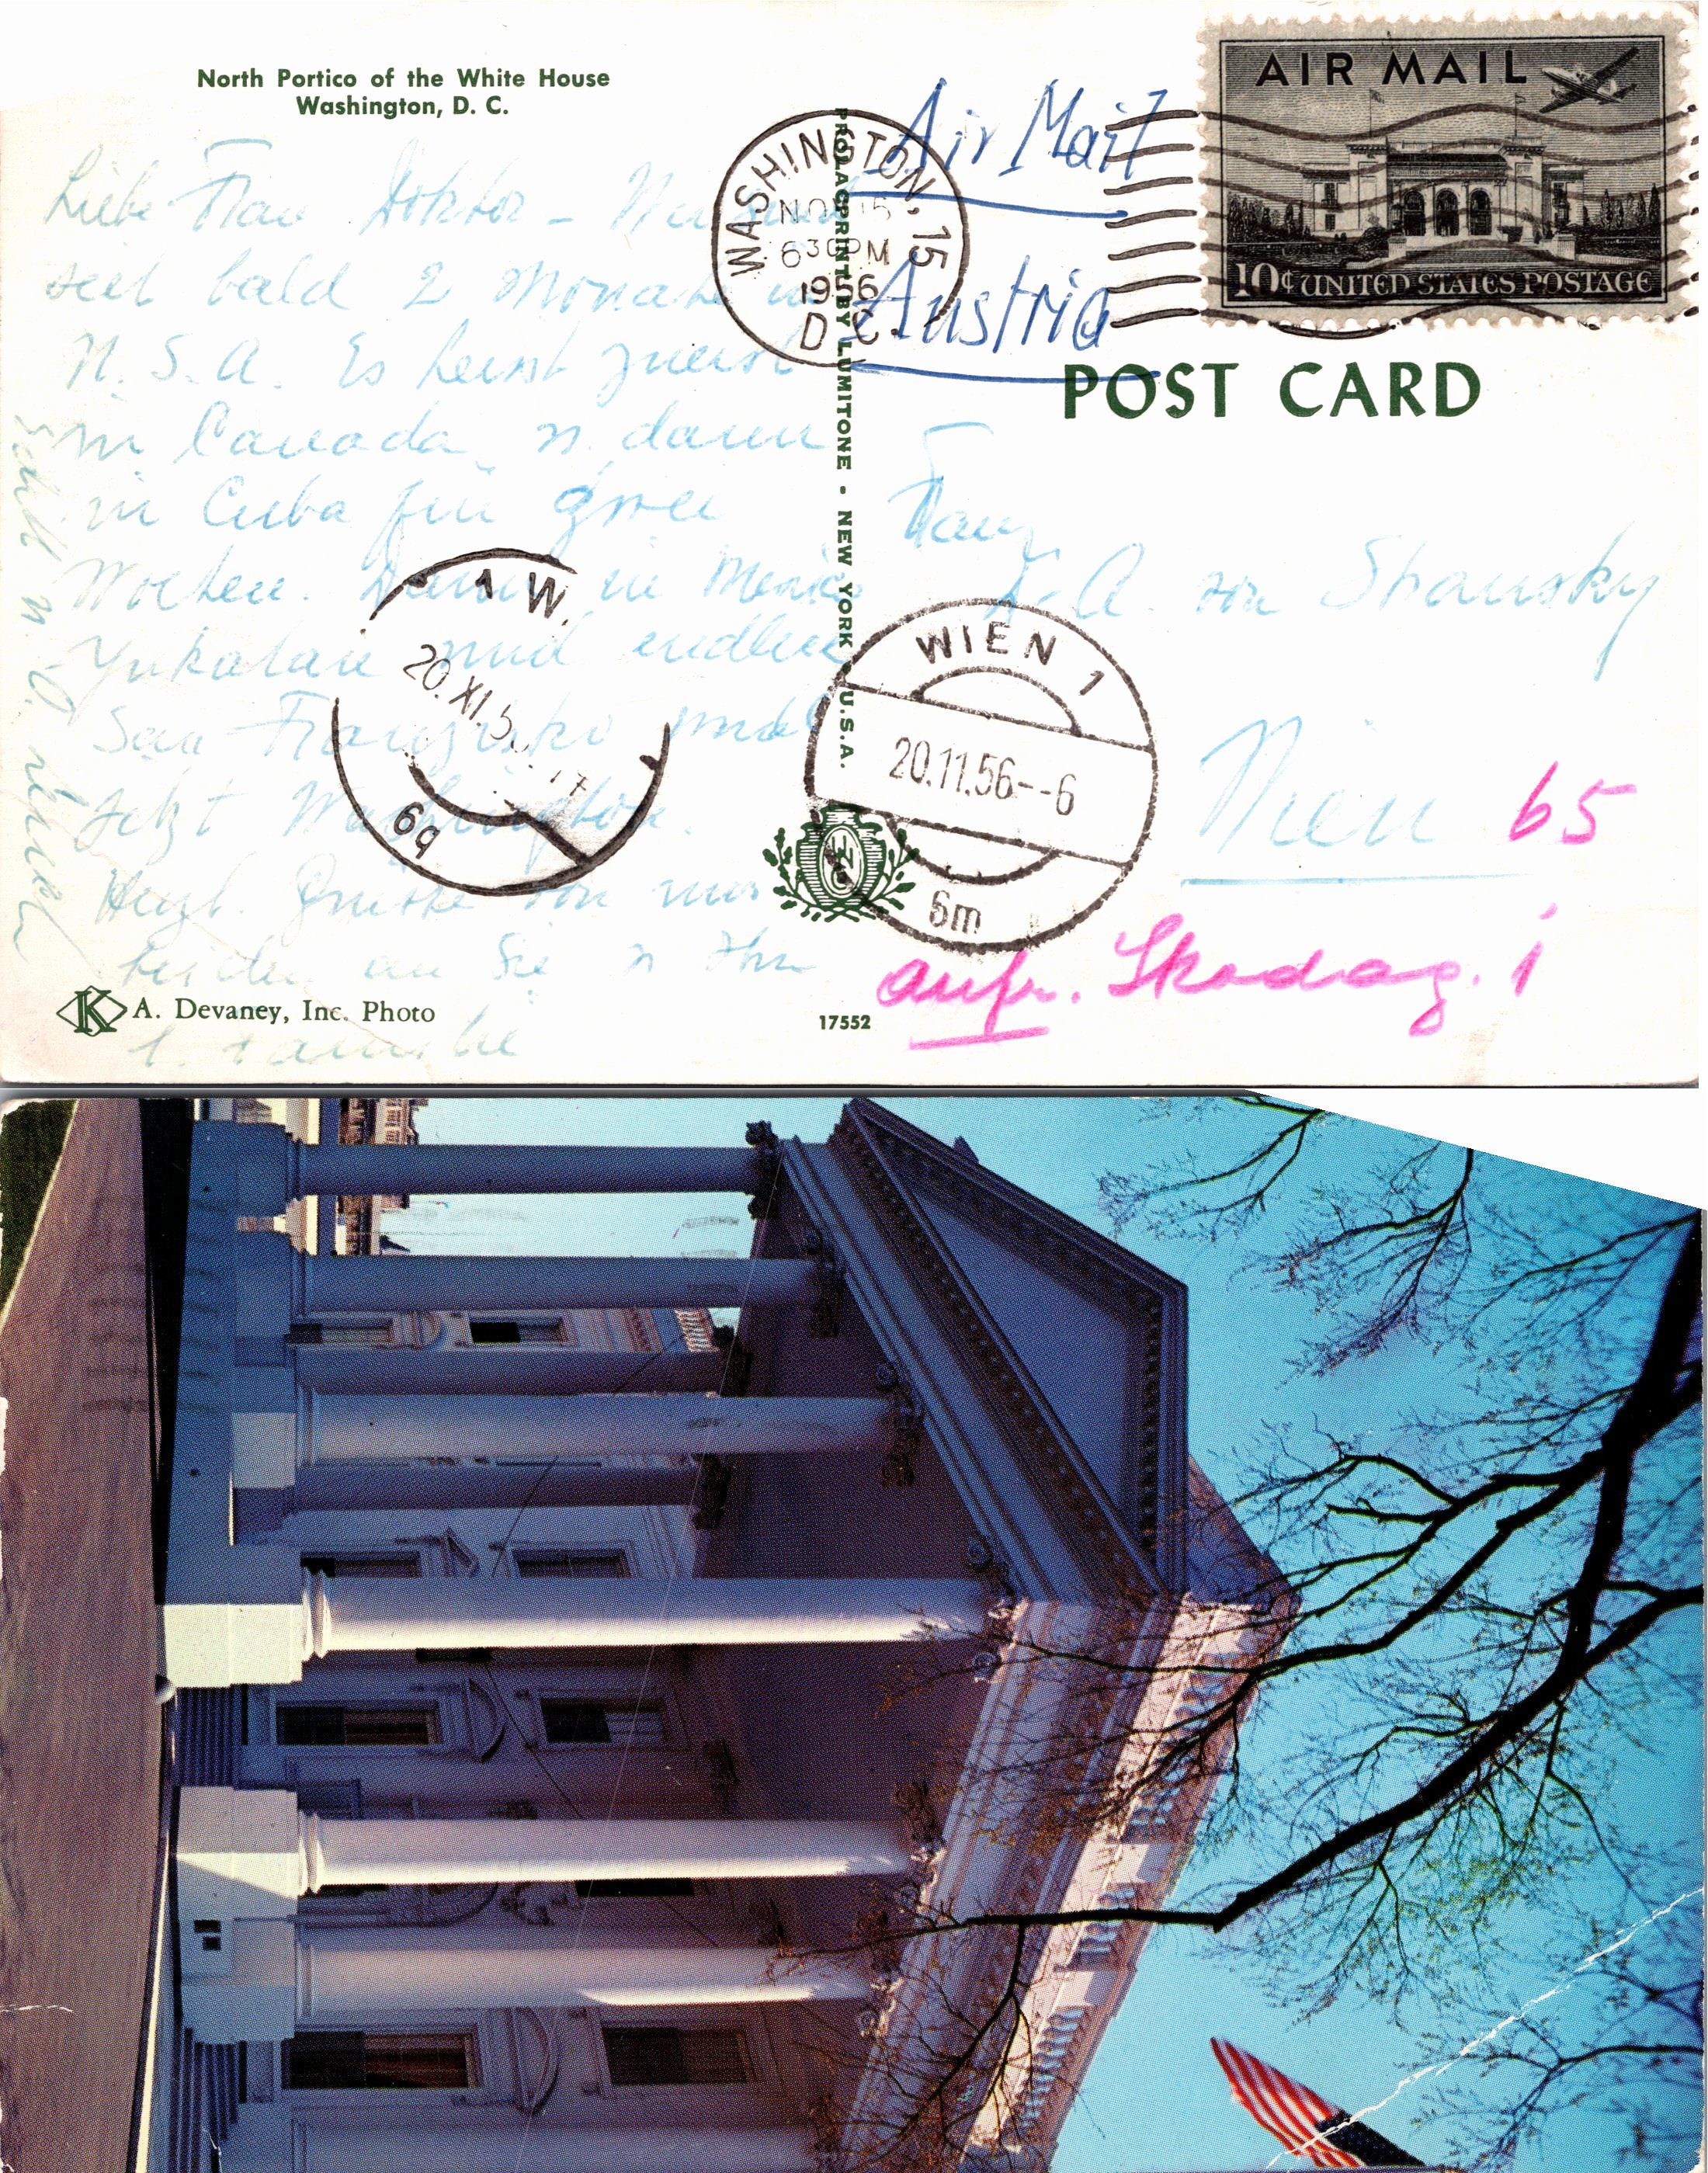 North Portico of the White House
Washington, D. C.
Liebe Frau Doktor –
seit bald 2 Monate in
U.S.A. Es heisst zuerst
in Canada u. dann
in Cuba für zwei
Wochen. Dann in Mexico
Yukatan und endlich
San Franzisko und
jetzt Washington.
Herzl. Grüsse von uns
beiden an Sie u Ihre
l. Familie
A. Devaney, Inc. Photo
PROLACPRINT BY LUMITONE · NEW YORK · U.S.A.
17552
WASHINGTON, 15
NOV 15
6 30 PM
1956
D. C.
Air Mail
Austria
AIR MAIL
10¢ UNITED STATES POSTAGE
POST CARD
Frau
von Stransky
Wien 65
aufr. Skodag. 1
1 W.
20. XI. 5
6q
WIEN 1
20.11.56--6
6m